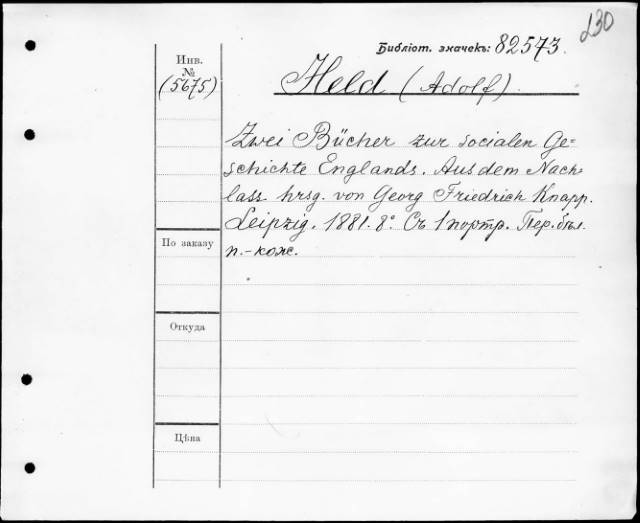 230
Библіот. значекъ: 82573.
Инв.
№
(5675)
Held (Adolf).
Zwei Bücher zur socialen Ge-
schichte Englands. Aus dem Nach-
lass hrsg. von Georg Friedrich Knapp.
Leipzig. 1881. 8°. Съ 1 портр. Пер. бѣл.
п.-кож.
По заказу
Откуда
Цѣна